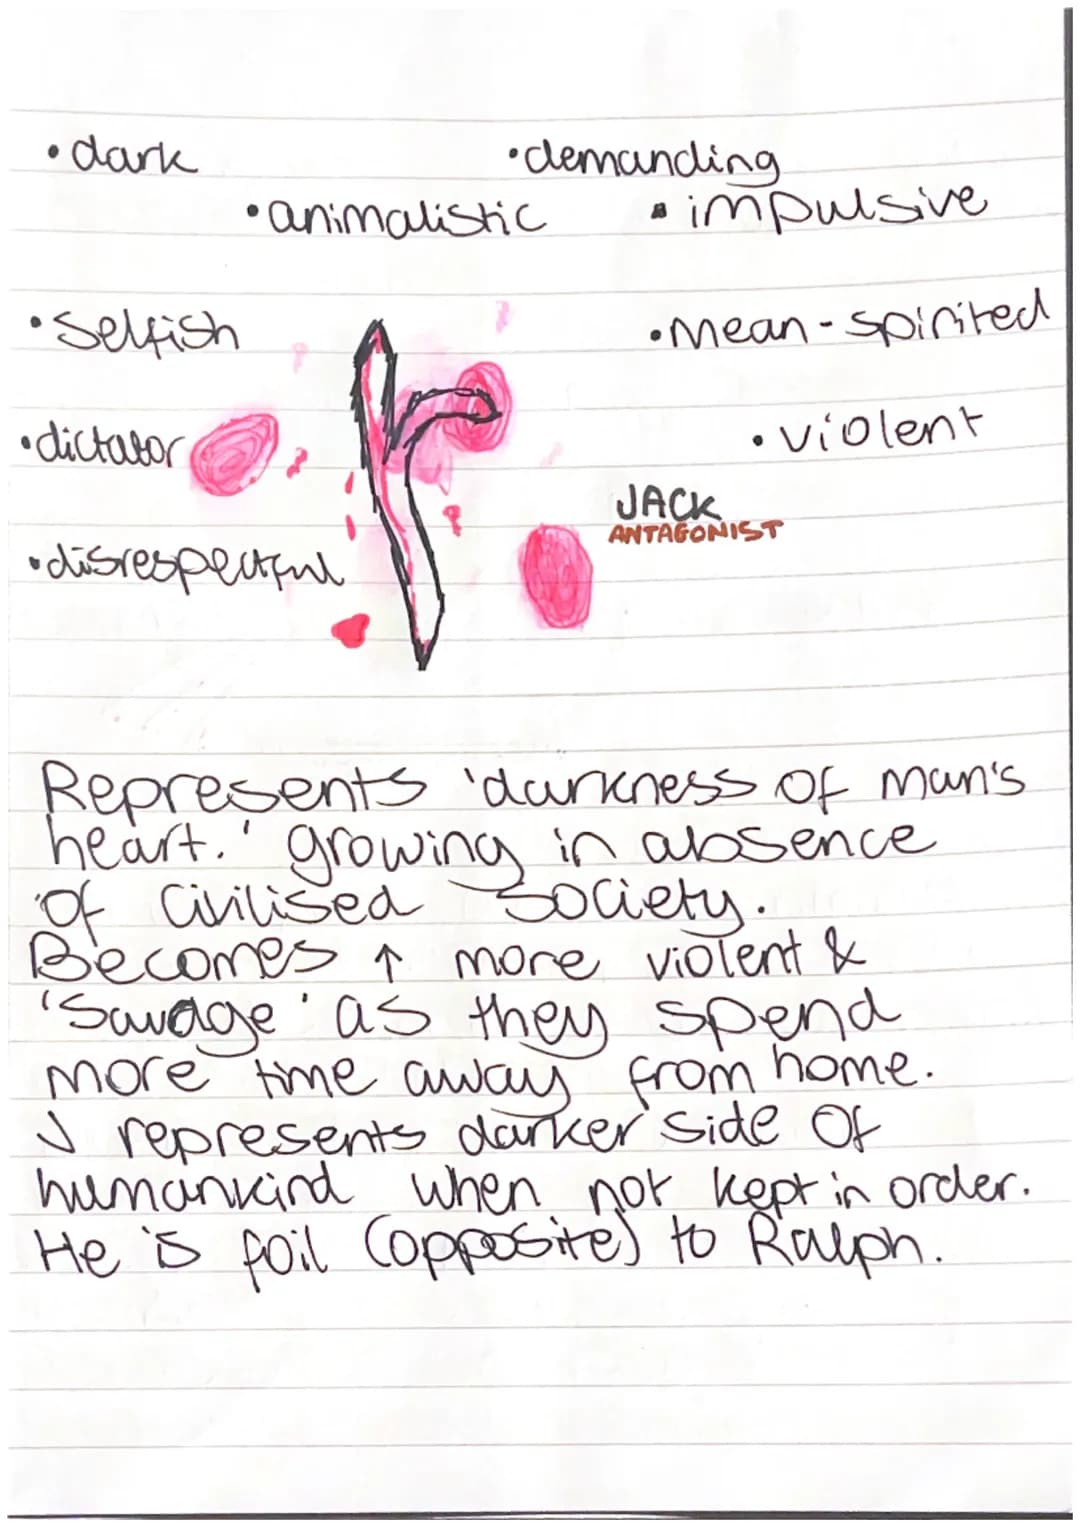 •dark
•demanding
•animalistic
•impulsive
•Selfish
•Mean-Spirited
•dictator
•violent
JACK
ANTAGONIST
•disrespectful
Represents 'darkness of man's
heart.' growing in absence
of civilised society.
Becomes ↑ more violent &
'Savage' as they spend
more time away from home.
J represents darker side of
humankind when not kept in order.
He is foil (opposite) to Ralph.